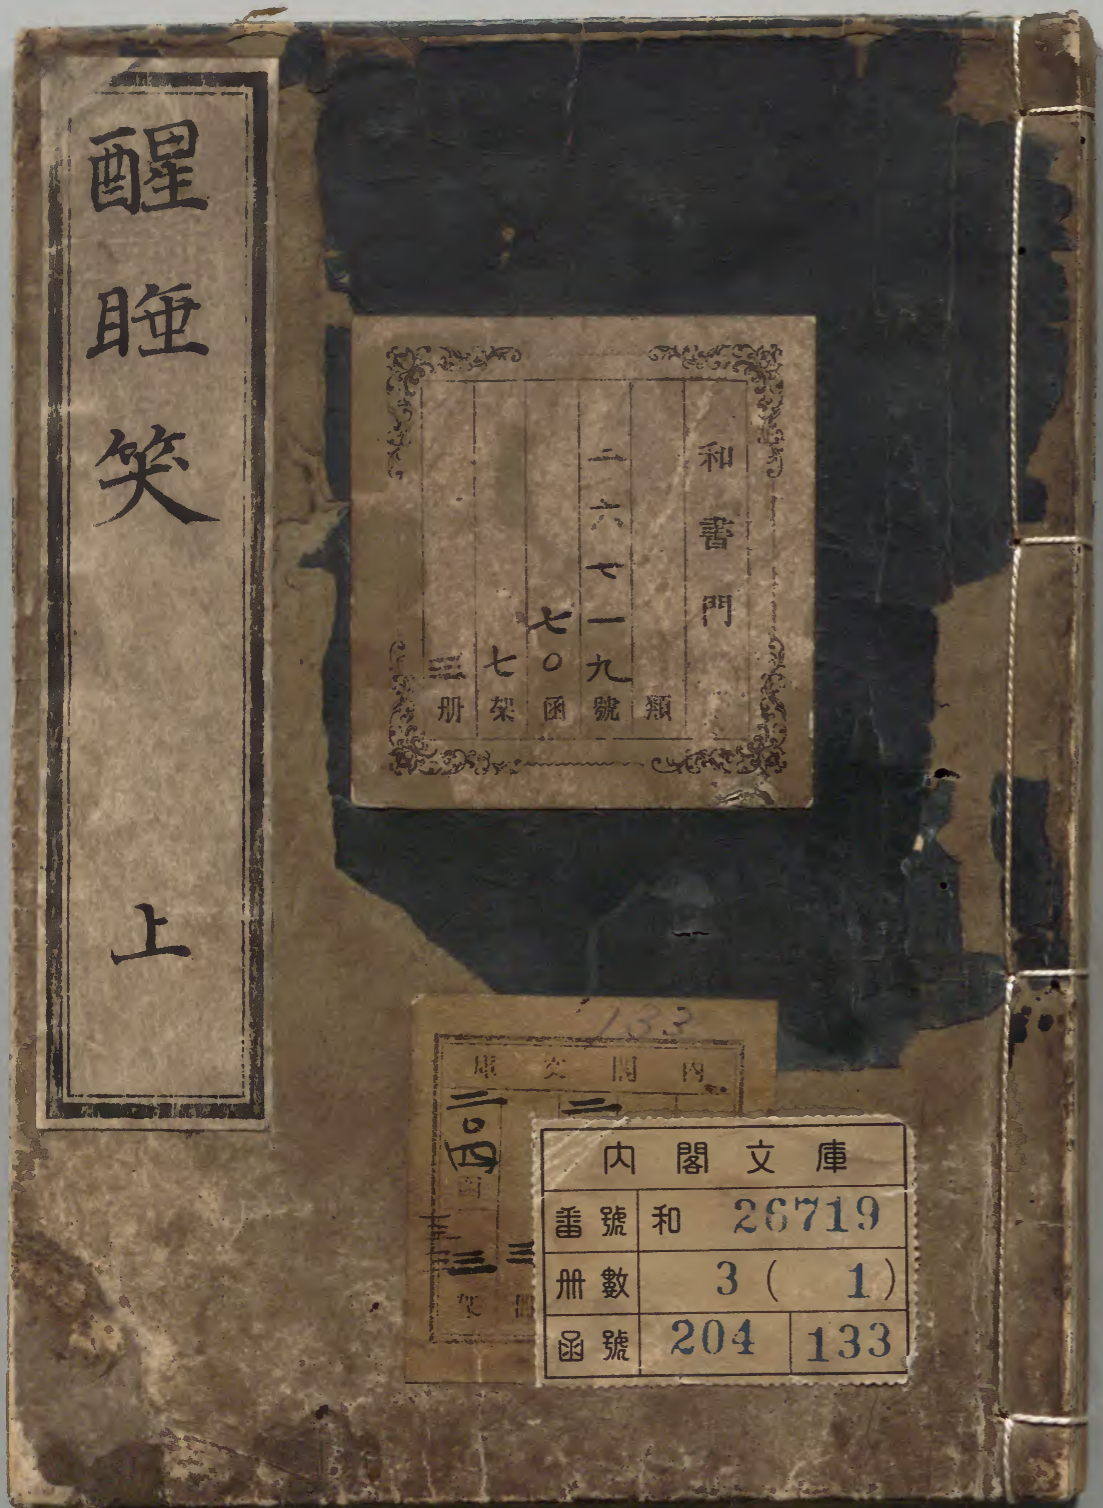 醒睡笑 上
和書門
類
二六七一九號
七〇函
七架
三册
133
內閣文庫
二
二〇四函
架
内閣文庫
番號 和 26719
册數 3 ( 1 )
函號 204 133